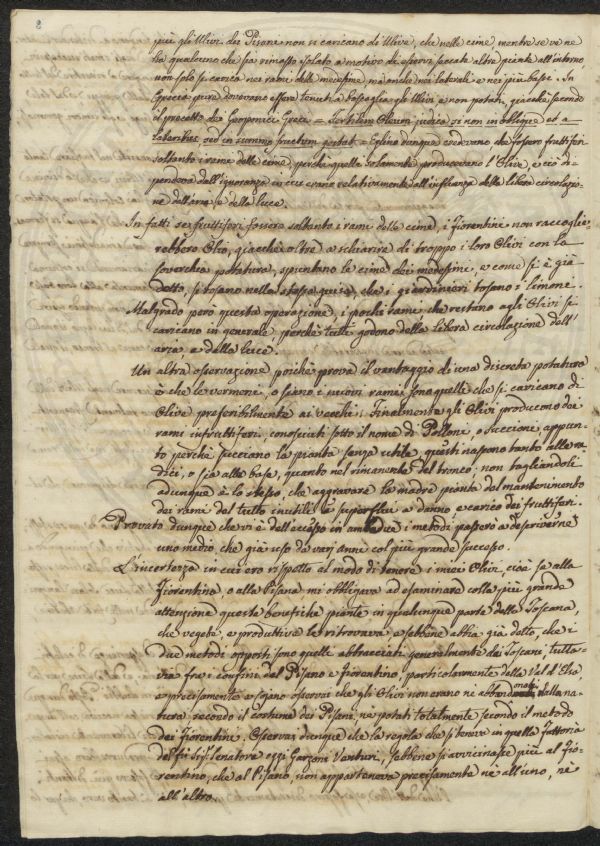 8
più gli Ulivi del Pisano non si caricano di Ulive, che nelle cime, mentre se ve ne
ha qualcuno che sia rimasto isolato a motivo di essersi seccate altre piante all'intorno
non solo si carica nei rami delle medesime ma anche nei laterali e nei più bassi. In
Grecia pure dovevano essere tenuti a boscaglia gli Ulivi e non potati, giacchè secondo
il precetto dei Geoponici Greci = fertilem Oleum judica si non in obliquo et a
lateribus sed in summo fructum portat = Eglino dunque credevano che fossero fruttiferi
soltanto i rami delle cime, perchè quelle solamente producevano l'Olive, e ciò di=
pendeva dall'ignoranza in cui erano relativamente all'influenza della libera circolazio=
ne dell'aria e della luce.
In fatti se fruttiferi fossero soltanto i rami delle cime, i Fiorentini non raccoglie=
rebbero Olio, giacchè oltre a schiarire di troppo i loro Olivi con la
soverchia potatura, spuntano le cime dei medesimi, e come si è già
detto, si tosano nella stessa guisa, che i giardinieri tosano i limoni.
Malgrado però questa operazione, i pochi rami che restano agli Olivi si
caricano in generale, perchè tutti godono della libera circolazione dell'
aria e della luce.
Un altra osservazione poichè prova il vantaggio di una discreta potatura
è che le vermene, o sieno i nuovi rami sono quelli che si caricano di
Olive preferibilmente ai vecchi: finalmente gli Olivi producono dei
rami infruttiferi conosciuti sotto il nome di Polloni, o succioni appun=
to perchè succiano la pianta senza utile, questi nascono tanto alle ra=
dici, o sia alla base, quanto nel rimanente del tronco; non tagliandoli
adunque è lo stesso, che aggravare la madre pianta del mantenimento
dei rami del tutto inutili e superflui a danno e carico dei fruttiferi.
Provato dunque che vi è dell'eccesso in ambedue i metodi passerò a descriverne
uno medio, che già uso da varj anni col più grande successo.
L'incertezza in cui ero rispetto al modo di tenere i miei Olivi, cioè se alla
Fiorentina, o alla Pisana mi obbligava ad esaminare colla più grande
attenzione queste benefiche piante in qualunque parte della Toscana,
che vegete, e produttive le ritrovava, e sebbene abbia già detto, che i
due metodi opposti sono quelli abbracciati generalmente dai Toscani, tutta=
via fra i confini del Pisano e Fiorentino, particolarmente della Val d'Elsa,
e precisamente a Sojano osservai che gli Olivi non erano nè abbandonati alla na=
tura, secondo il costume dei Pisani, nè potati totalmente secondo il metodo
dei Fiorentini. Osservai dunque che la regola che si teneva in quella Fattoria
del fù Sig.r Senatore oggi Garzoni Venturi, sebbene si avvicinasse più al Fio=
rentino, che al Pisano, non apparteneva precisamente nè all'uno, nè
all'altro.